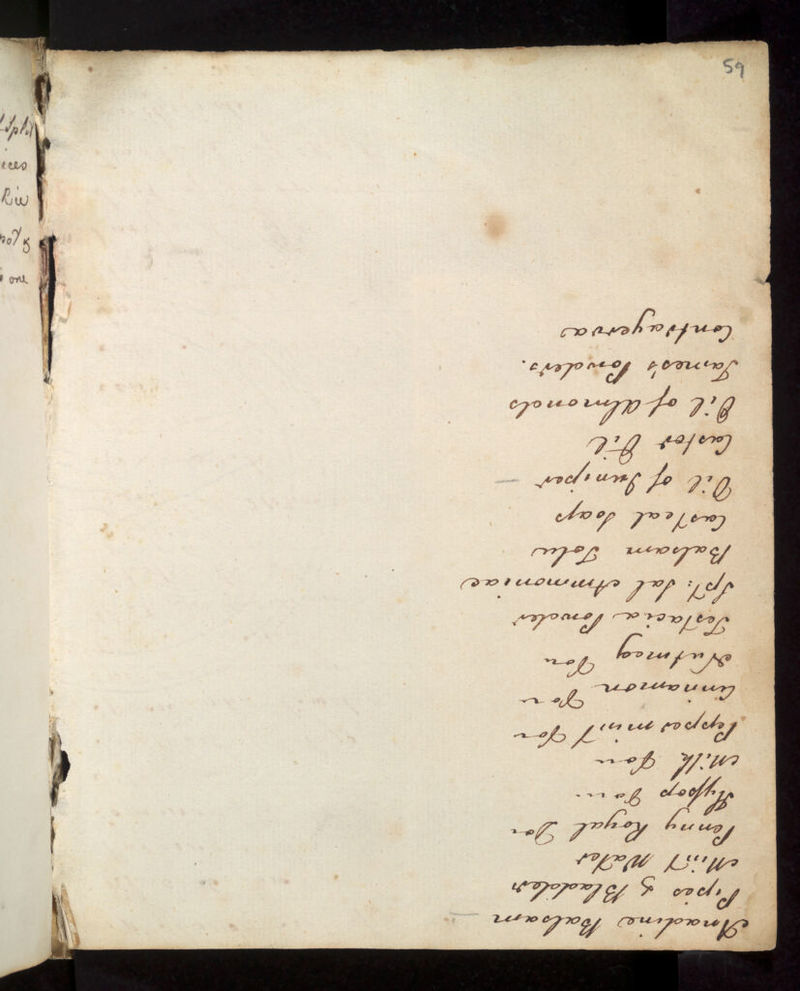 59
Anadine Balsam —
Pipes & Bladders
Mint Water
Penny Royal Do
Hyssop Do
Milk Do
Peppermint Do
Cinnamon Do
Nutmeg Do
Testacia Powder
Spt: Sal Ammoniac
Balsam Tolu
Casteal Soap
Oil of Juniper —
Castor Oil
Oil of Almonds
James's Powders.
Contrayerva
ices
one